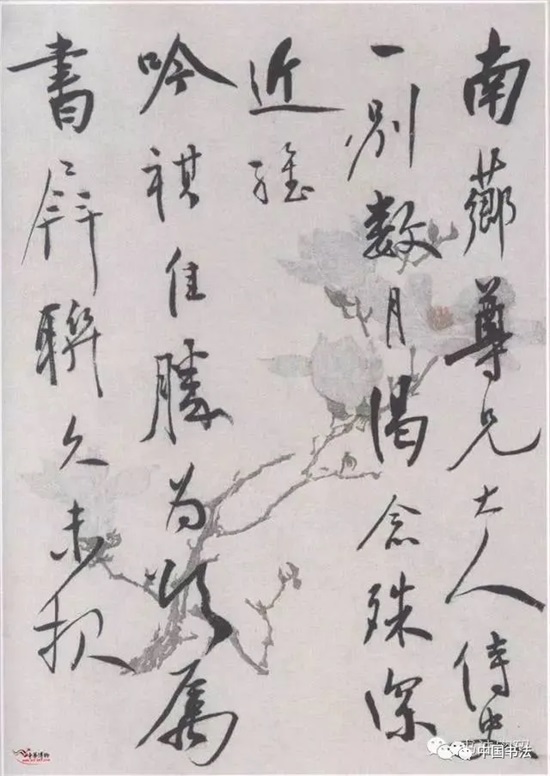 南薌尊兄大人侍史
一别数月渴念殊深
近維
吟祺佳勝为頌属
書屏聯久未报
中国书法